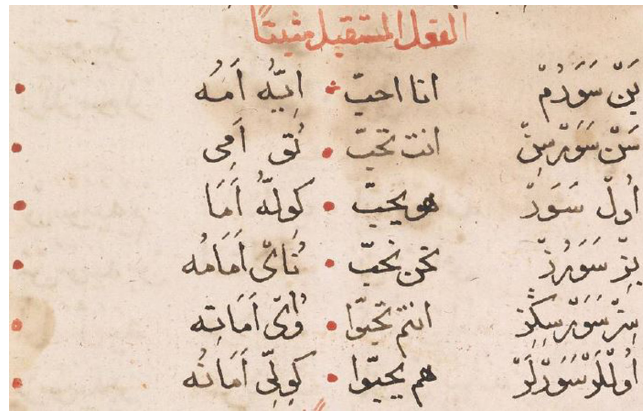 الفعل المستقبل مثبتًا
بَنْ سَوَرُمْ انا احبّ اِيُّه اَمُه
سَنْ سَوَرْسِنْ انت تحبّ تُو اَمِى
اُولْ سَوَرْ هو يحبّ كولُّه اَمَا
بِزْ سَوَرُزْ نحن نحبّ نُاىْ اَمَامُه
سِزْ سَوَرْسِكُزْ انتم تحبّوا وُاىْ اَمَاتِه
اُولَّلَرْ سَوَرْلَرْ هم يحبّوا كولِّى اَمَانُه